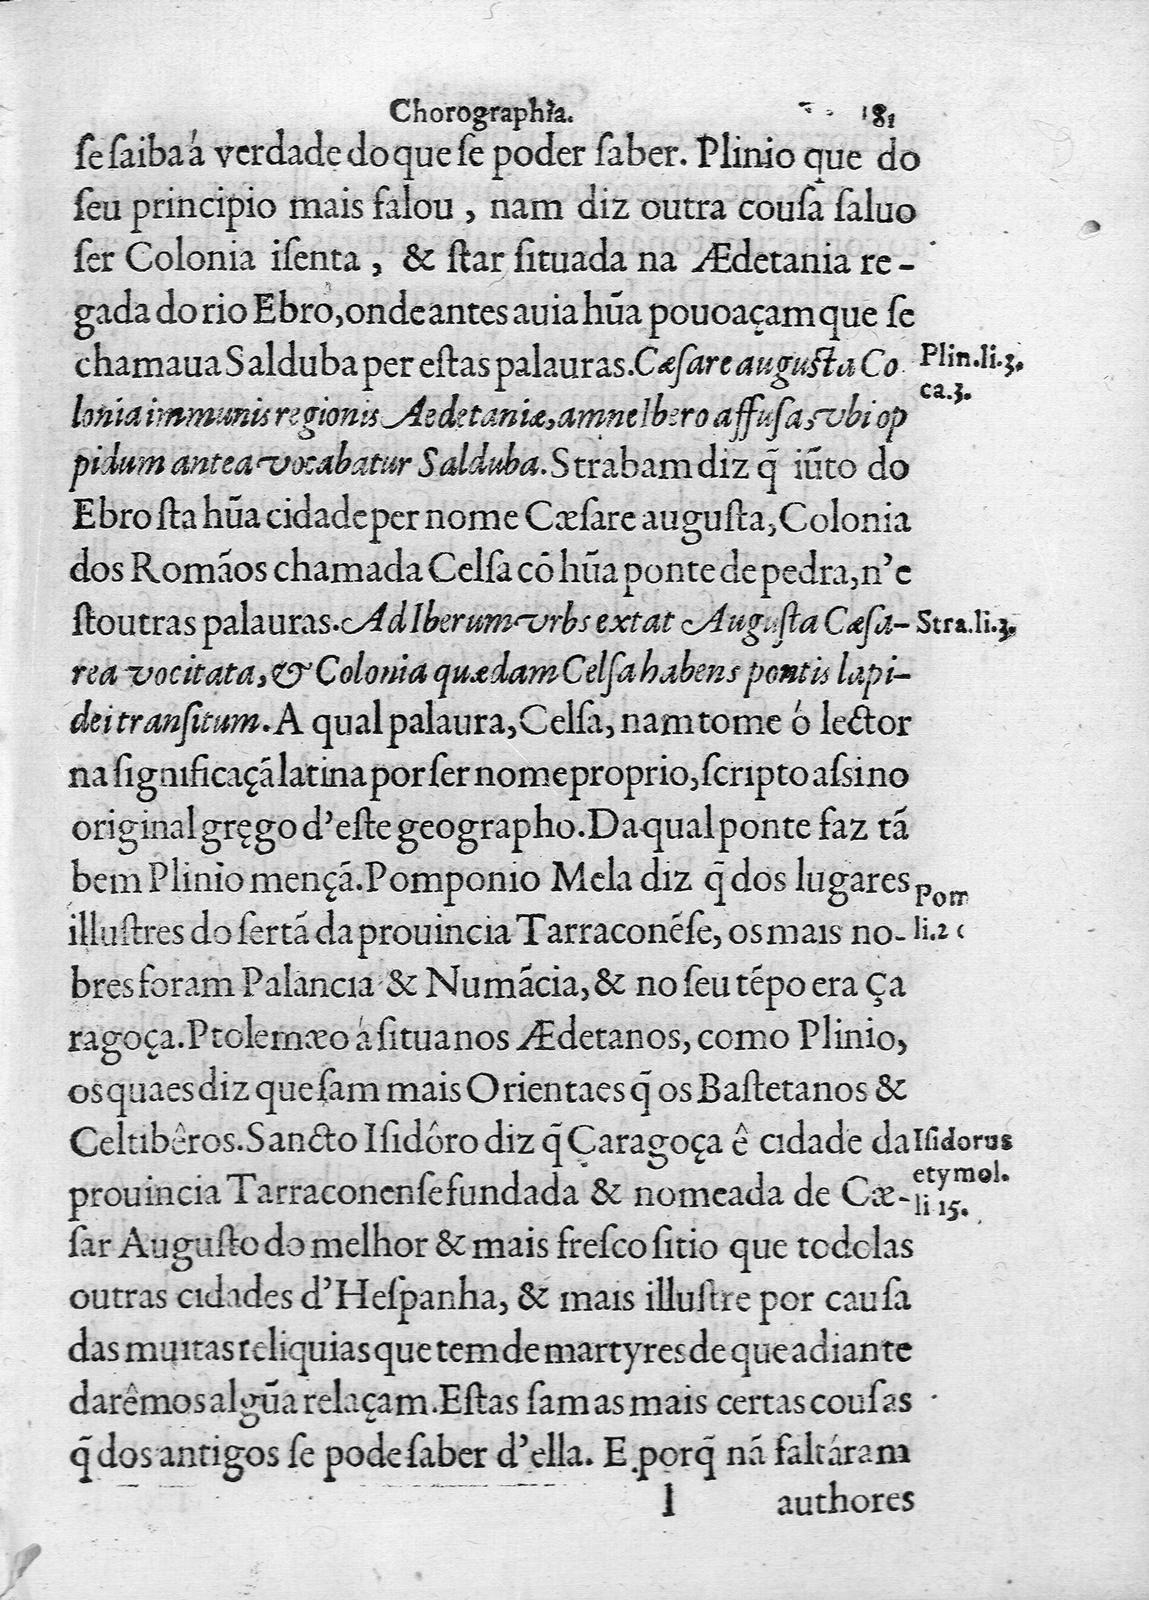 Chorographia. 181
ſe ſaiba á verdade do que ſe poder ſaber. Plinio que do
ſeu principio mais falou, nam diz outra couſa ſaluo
ſer Colonia iſenta, & ſtar ſituada na Ædetania re-
gada do rio Ebro, onde antes auia hũa pouoaçam que ſe
chamaua Salduba per eſtas palauras. Cæſare auguſta Co
Plin.li.3.
ca.3.
lonia immunis regionis Aedetaniæ, amne Ibero affuſa, vbi op
pidum antea vocabatur Salduba. Strabam diz q̃ iũto do
Ebro ſta hũa cidade per nome Cæſare auguſta, Colonia
dos Romãos chamada Celſa cõ hũa ponte de pedra, n'e
ſtoutras palauras. Ad Iberum vrbs extat Auguſta Cæſa-
Stra.li.3.
rea vocitata, & Colonia quædam Celſa habens pontis lapi-
dei tranſitum. A qual palaura, Celſa, nam tome ó lector
na ſignificaçã latina por ſer nome proprio, ſcripto aſsi no
original gręgo d'eſte geographo. Da qual ponte faz tã
bem Plinio mençã. Pomponio Mela diz q̃ dos lugares
Pom
illuſtres do ſertã da prouincia Tarraconẽſe, os mais no-
li.2 c
bres foram Palancia & Numãcia, & no ſeu tẽpo era Ça
ragoça. Ptolemæo á ſitua nos Ædetanos, como Plinio,
os quaes diz que ſam mais Orientaes q̃ os Baſtetanos &
Celtibêros. Sancto Iſidôro diz q̃ Çaragoça ê cidade da
Iſidorus
etymol.
li 15.
prouincia Tarraconenſe fundada & nomeada de Cæ-
ſar Auguſto do melhor & mais freſco ſitio que todolas
outras cidades d'Heſpanha, & mais illuſtre por cauſa
das muitas reliquias que tem de martyres de que adiante
darêmos algũa relaçam. Eſtas ſam as mais certas couſas
q̃ dos antigos ſe pode ſaber d'ella. E porq̃ nã faltáram
l authores